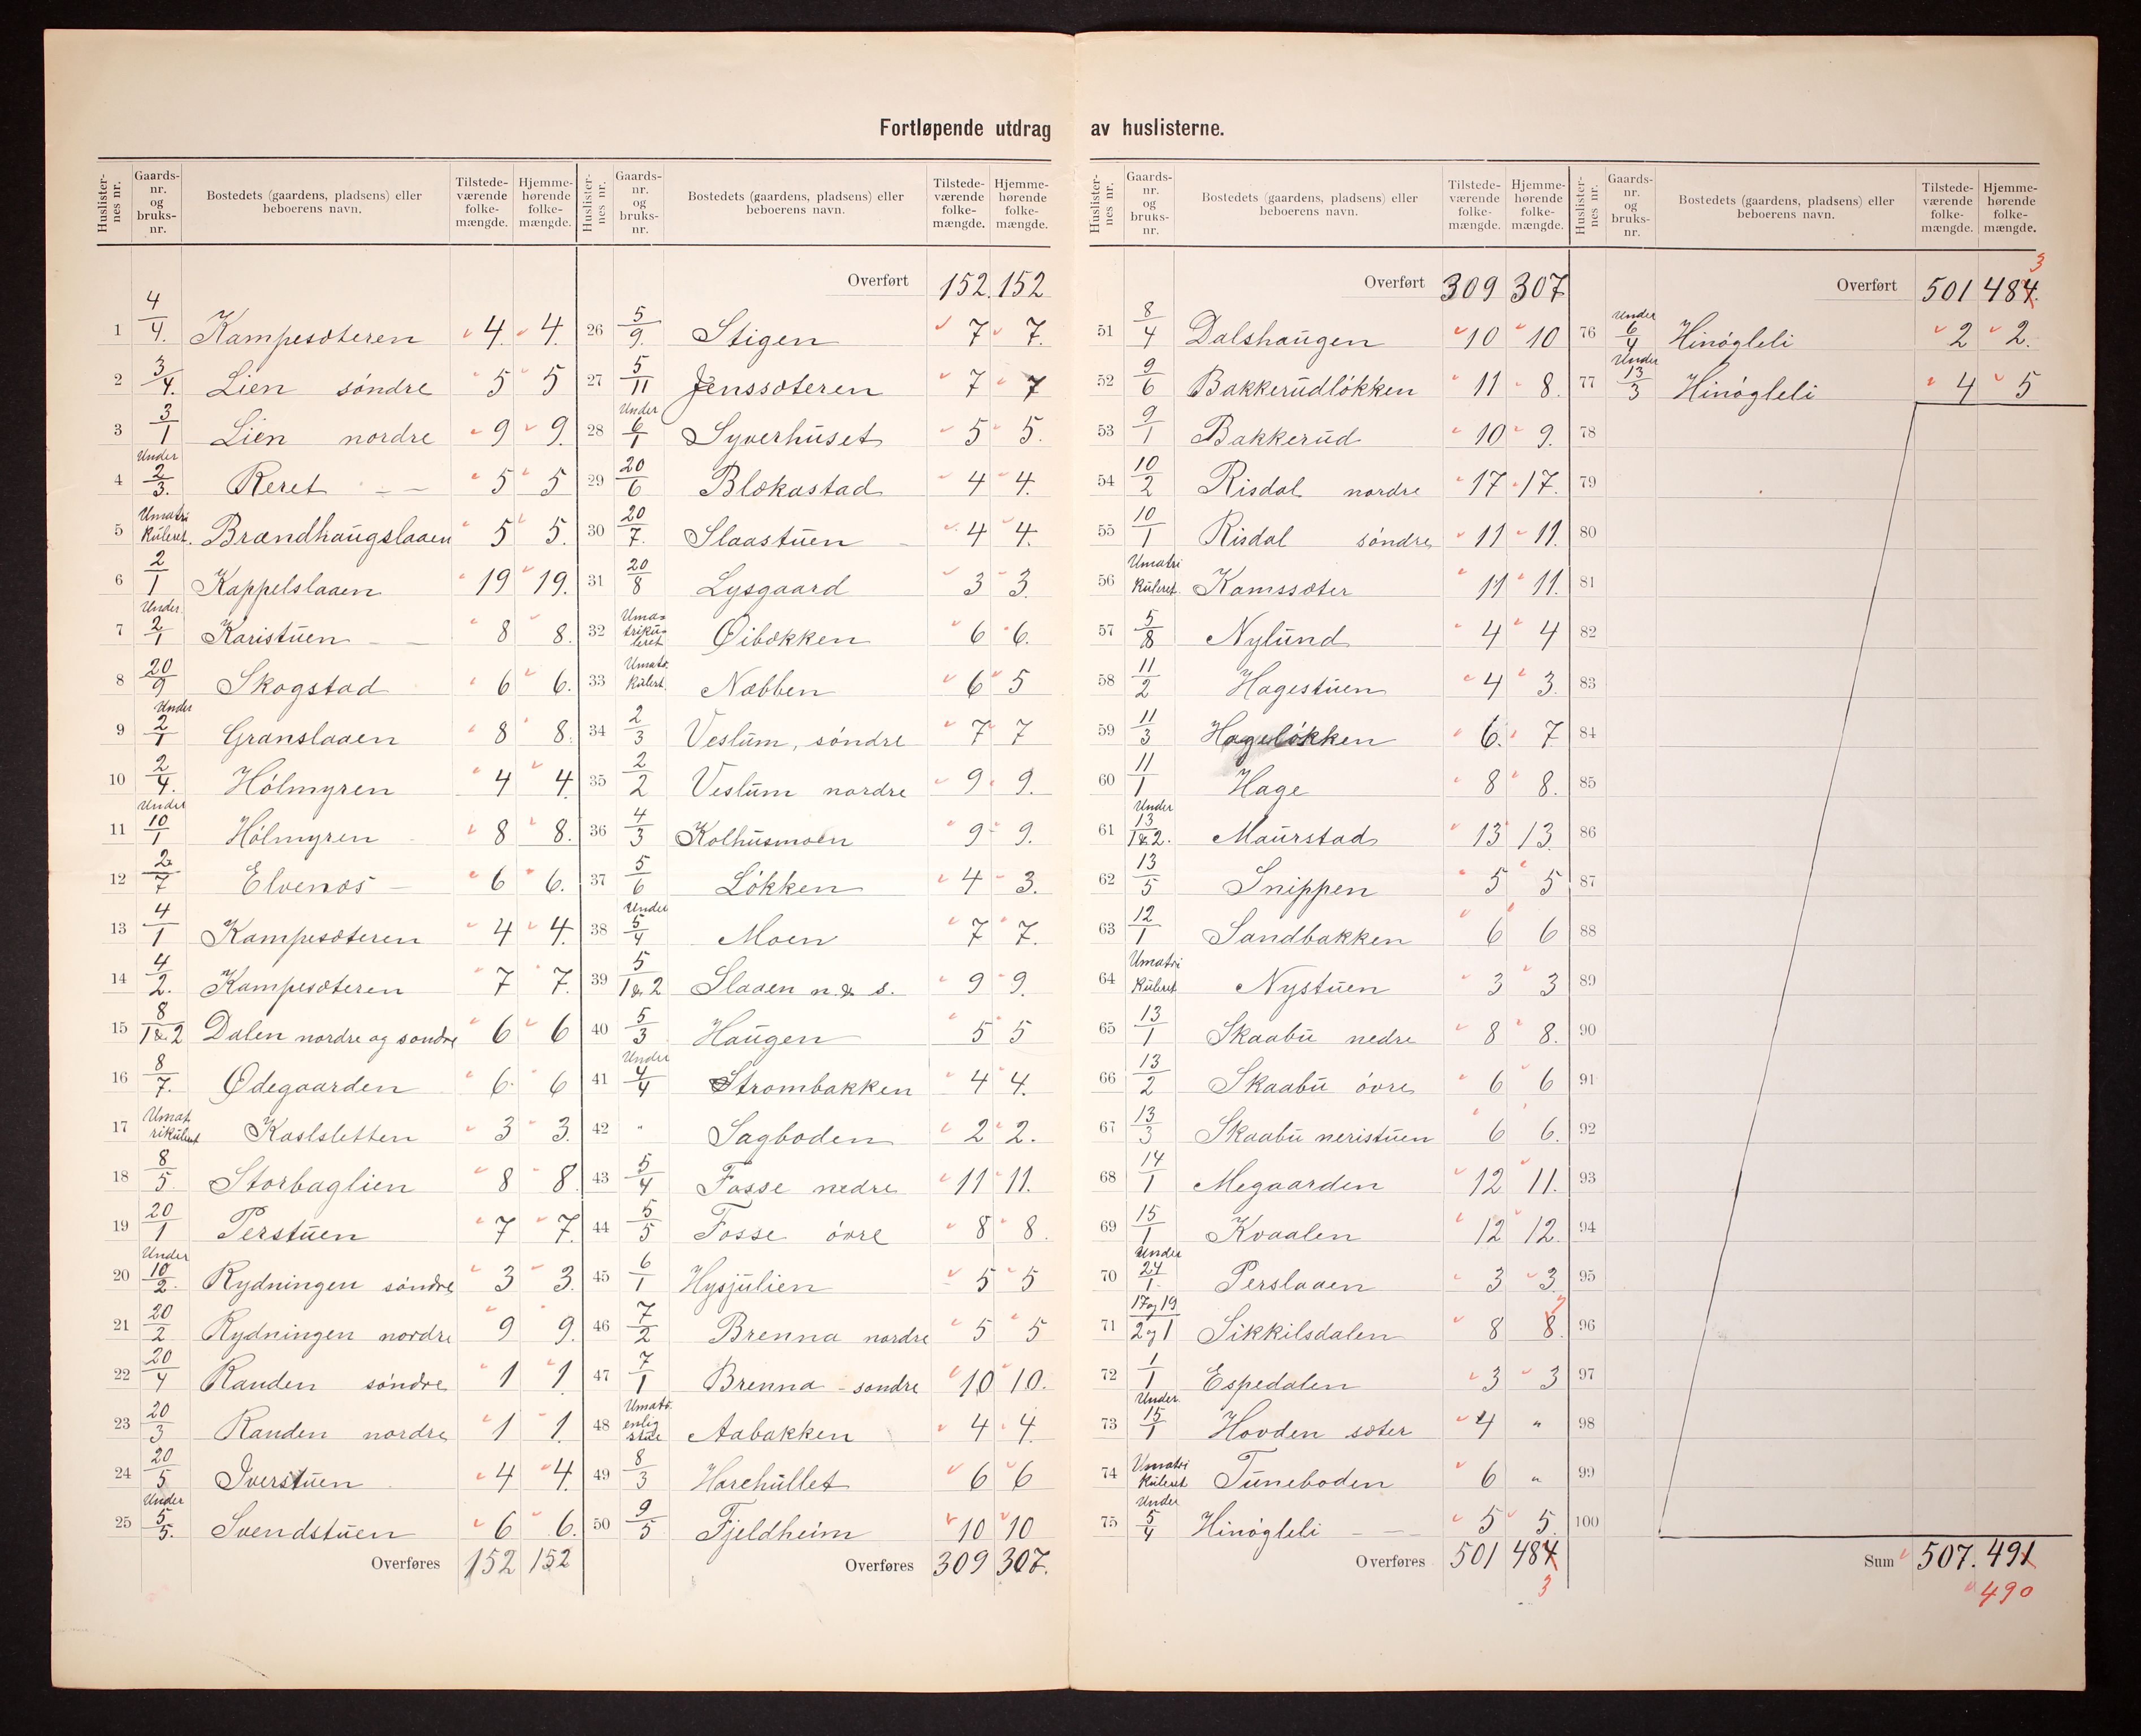 Fortløpende utdrag av huslisterne.
Huslisternes nr. | Gaardsnr. og bruksnr. | Bostedets (gaardens, pladsens) eller beboerens navn. | Tilstedeværende folkemængde. | Hjemmehørende folkemængde.
1 4/4. Kampesæteren 4. 4.
2 3/4. Lien søndre 5 5
3 3/1 Lien nordre 9 9.
4 Under 2/3. Reret 5 5
5 Umatrikuleret. Brændhaugslaaen 5 5.
6 2/1 Kappelslaaen 19 19.
7 Under 2/1 Karistuen 8 8.
8 20/9 Skogstad 6 6.
9 Under 2/1 Granslaaen 8 8.
10 2/4. Hólmyren 4 4.
11 Under 10/1 Hólmyren 8 8.
12 2/7 Elvenæs 6 6.
13 4/1 Kampesæteren 4 4.
14 4/2. Kampesæteren 7 7.
15 8/1&2 Dalen nordre og søndre 6 6
16 8/7. Ødegaarden 6. 6
17 Umatrikulert Kaslsletten 3 3.
18 8/5 Storbaglien 8 8.
19 20/1 Perstuen 7 7.
20 Under 10/2. Rydningen søndre 3 3.
21 20/2 Rydningen nordre 9 9.
22 20/4 Randen søndre 1 1
23 20/3 Randen nordre 1 1.
24 20/5 Iverstuen 4 4.
25 Under 5/5. Svendstuen 6 6.
Overføres 152 152
Huslisternes nr. | Gaardsnr. og bruksnr. | Bostedets (gaardens, pladsens) eller beboerens navn. | Tilstedeværende folkemængde. | Hjemmehørende folkemængde.
Overført 152. 152
26 5/9. Stigen 7 7.
27 5/11 Jenssæteren 7 7
28 Under 6/1 Syverhuset 5 5.
29 20/6 Blekastad 4 4.
30 20/7. Slaastuen 4 4.
31 20/8 Lysgaard 3 3.
32 Umatrikuleret Øibekken 6 6.
33 Umatrikulert. Nabben 6 5
34 2/3 Veslum, søndre 7 7
35 2/2 Veslum nordre 9 9.
36 4/3 Kolhusmoen 9 9.
37 5/6 Lókken 4 3.
38 Under 5/4 Moen 7 7.
39 5/1&2 Slaaen n. & s. 9 9.
40 5/3 Haugen 5 5
41 Under 4/4 Strombakken 4 4.
42 " Sagboden 2 2.
43 5/4 Fosse nedre 11 11.
44 5/5 Fosse óvre 8 8.
45 6/1 Hysjulien 5 5
46 7/2 Brenna nordre 5 5
47 7/1 Brenna søndre 10 10.
48 Umatr. enlig stue Aabakken 4 4.
49 8/3 Harehullet 6 6
50 9/5 Fjeldheim 10 10
Overføres 309 307.
Huslisternes nr. | Gaardsnr. og bruksnr. | Bostedets (gaardens, pladsens) eller beboerens navn. | Tilstedeværende folkemængde. | Hjemmehørende folkemængde.
Overført 309 307
51 8/4 Dalshaugen 10 10
52 9/6 Bakkerudlókken 11 8.
53 9/1 Bakkerud 10 9.
54 10/2 Risdal nordre 17 17.
55 10/1 Risdal søndre 11 11.
56 Umatrikuleret. Kamssæter 11 11.
57 5/8 Nylund 4 4
58 11/2 Hagestuen 4 3.
59 11/3 Hagelókken 6. 7
60 11/1 Hage 8 8.
61 Under 13/1&2. Maurstad 13 13.
62 13/5 Snippen 5 5
63 12/1 Sandbakken 6 6
64 Umatrikuleret Nystuen 3 3
65 13/1 Skaabu nedre 8 8.
66 13/2 Skaabu óvre 6 6
67 13/3 Skaabu neristuen 6 6.
68 14/1 Megaarden 12 11.
69 15/1 Kvaalen 12 12.
70 Under 24/1. Perslaaen 3 3.
71 17og19/2og1 Sikkilsdalen 8 8. 7
72 1/1 Espedalen 3 3
73 Under 15/1 Hovden sæter 4 "
74 Umatrikuleret Tuneboden 6 "
75 Under 5/4 Hinógleli 5 5.
Overføres 501 484
3
Huslisternes nr. | Gaardsnr. og bruksnr. | Bostedets (gaardens, pladsens) eller beboerens navn. | Tilstedeværende folkemængde. | Hjemmehørende folkemængde.
3
Overført 501 484.
76 Under 6/4 Hinógleli 2 2.
77 Under 13/3 Hinógleli 4 5
78
79
80
81
82
83
84
85
86
87
88
89
90
91
92
93
94
95
96
97
98
99
100
Sum 507. 491
490